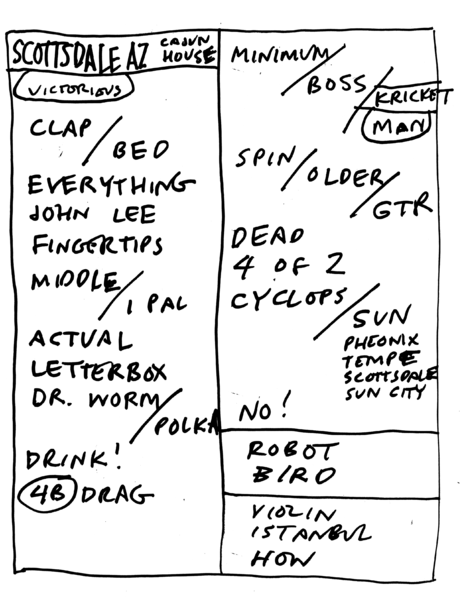 SCOTTSDALE AZ CAJUN HOUSE
VICTORIOUS
CLAP / BED
EVERYTHING
JOHN LEE
FINGERTIPS
MIDDLE / 1 PAL
ACTUAL
LETTERBOX
DR. WORM / POLKA
DRINK!
4B DRAG
MINIMUM / BOSS / KRICKET
MAN
SPIN / OLDER / GTR
DEAD
4 OF 2
CYCLOPS / SUN
PHEONIX
TEMPE
SCOTTSDALE
SUN CITY
NO!
ROBOT
BIRD
VIOLIN
ISTANBUL
HOW